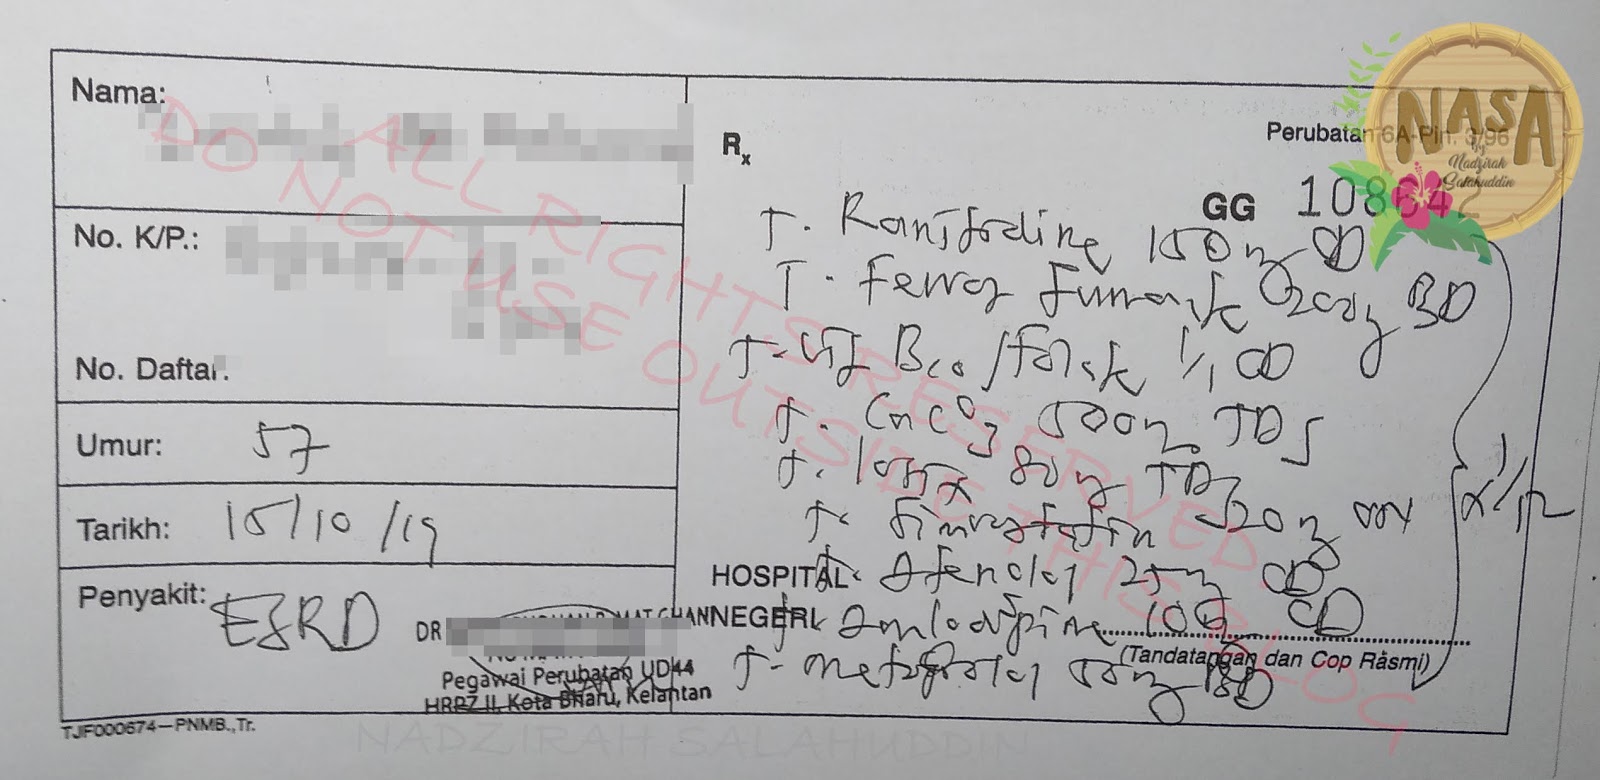 Nama:
No. K/P.:
No. Daftar.
Umur: 57
Tarikh: 15/10/19
Penyakit: ESRD
DR
Pegawai Perubatan UD44
HRPZ II, Kota Bharu, Kelantan
TJF000674—PNMB.,Tr.
Rx
Perubatan 6A-Pin. 3/96
GG 108642
T. Ranitidine 150mg OD
T. Ferrous Fumarate 200mg BD
T. Vit Bco/folate 1/1 OD
T. CaCO3 500mg TDS
T. Lasix 80mg TDS
T. Simvastatin 20mg ON
T. Atenolol 25mg OD
T. Amlodipine 10mg OD
T. Metoprolol 50mg BD
x 1/12
HOSPITAL
NEGERI,
(Tandatangan dan Cop Rasmi)
NASA
by
Nadzirah
Salahuddin
ALL RIGHTS RESERVED
DO NOT USE OUTSIDE THIS BLOG
NADZIRAH SALAHUDDIN